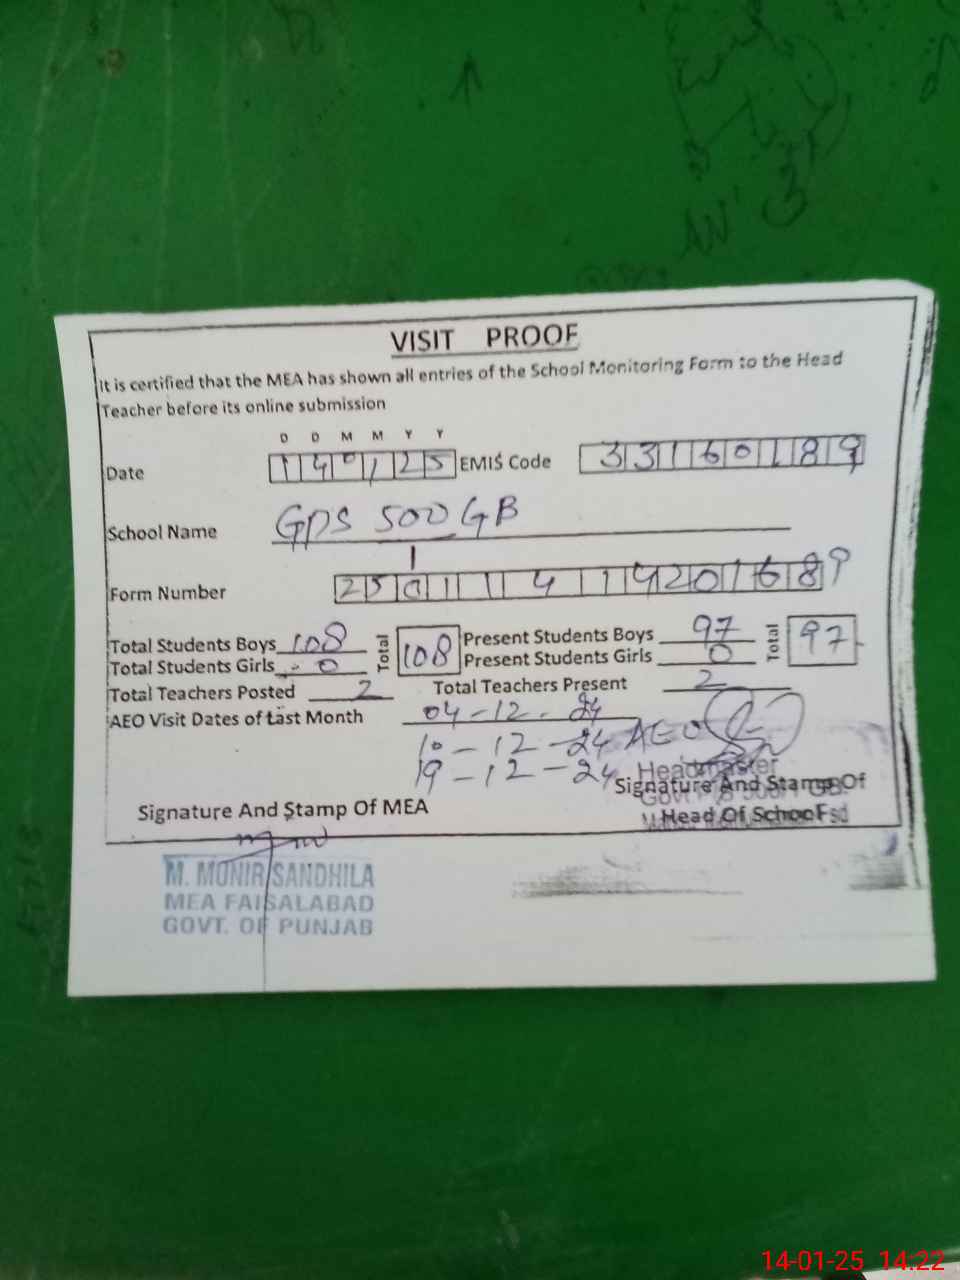 VISIT PROOF
It is certified that the MEA has shown all entries of the School Monitoring Form to the Head
Teacher before its online submission
D D M M Y Y
Date 140125 EMIS Code 33160189
School Name GPS 500 GB
Form Number 250111414201689
Total Students Boys 108 Total 108 Present Students Boys 97 Total 97
Total Students Girls 0 Present Students Girls 0
Total Teachers Posted 2 Total Teachers Present 2
AEO Visit Dates of Last Month 04-12-24
10-12-24 AEO
19-12-24
Headmaster
Signature And Stamp Of
Signature And Stamp Of MEA
Head Of School
M. MUNIR SANDHILA
MEA FAISALABAD
GOVT. OF PUNJAB
14-01-25 14:22